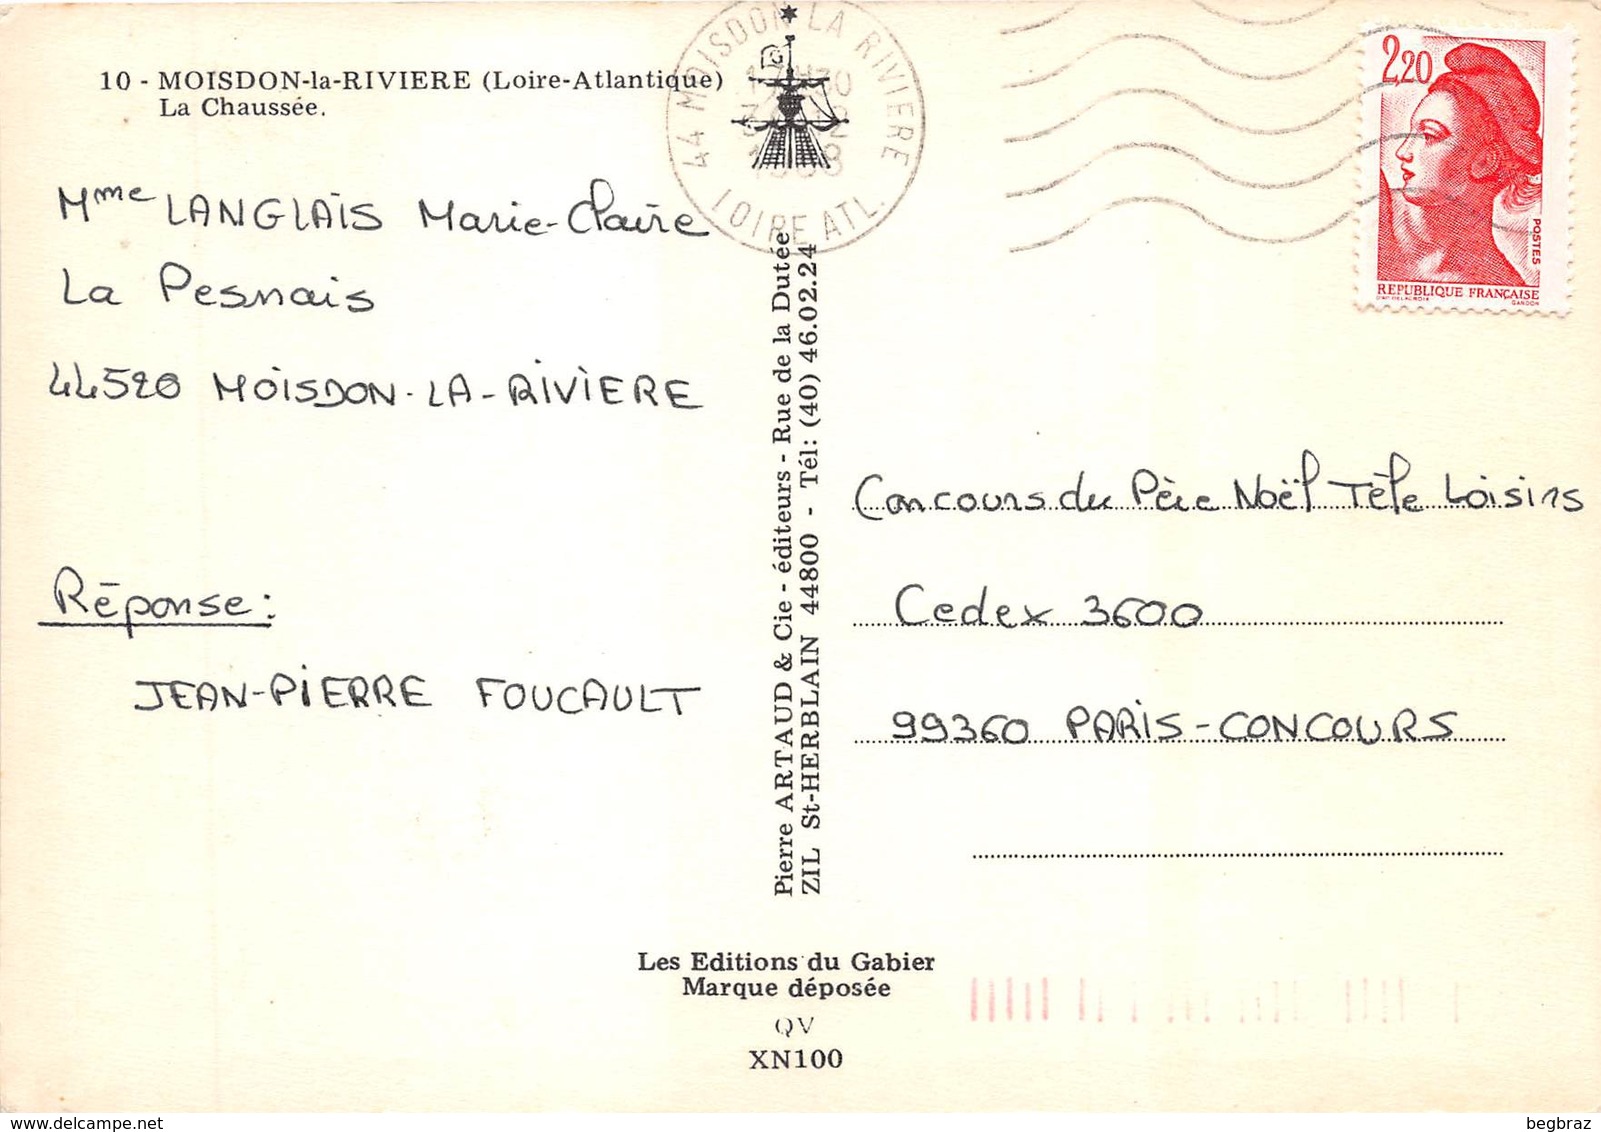 10 - MOISDON-la-RIVIERE (Loire-Atlantique)
La Chaussée.
44 MOISDON LA RIVIERE
LOIRE ATL.
2,20
POSTES
REPUBLIQUE FRANÇAISE
D'AP. DELACROIX
GANDON
Mme LANGLAIS Marie-Claire
La Pesnais
44520 MOISDON-LA-RIVIERE
Réponse:
JEAN-PIERRE FOUCAULT
Pierre ARTAUD & Cie - éditeurs - Rue de la Dutée
ZIL St-HERBLAIN 44800 - Tél: (40) 46.02.24
Concours du Père Noël Tèle Loisirs
Cedex 3600
99360 PARIS-CONCOURS
Les Editions du Gabier
Marque déposée
QV
XN100
delcampe.net
begbraz